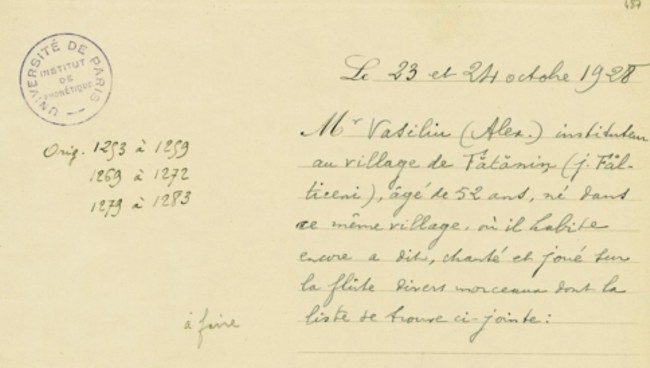 487
UNIVERSITÉ DE PARIS
INSTITUT
DE
PHONÉTIQUE
Le 23 et 24 octobre 1928
Mr Vasiliu (Alex.) instituteur
au village de Tătăruşi (j. Făl-
ticeni), âgé de 52 ans, né dans
ce même village, où il habite
encore a dit, chanté et joué sur
la flûte divers morceaux dont la
liste se trouve ci-jointe:
Orig. 1253 à 1259
1269 à 1272
1279 à 1283
à faire